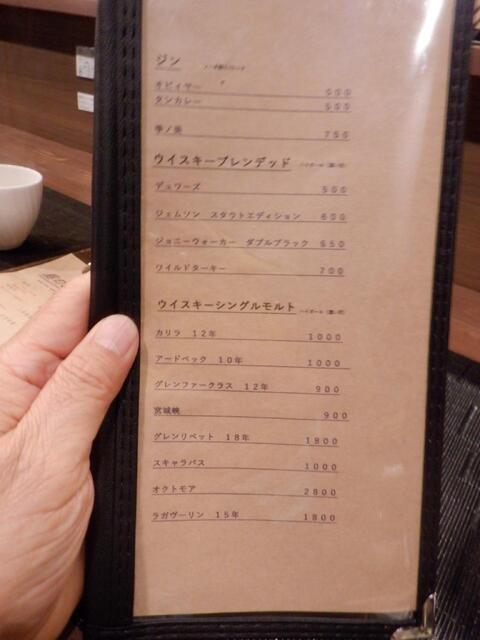 ジン
タンカレー 500
季ノ美 750
ウイスキーブレンデッド
デュワーズ 500
ジェムソン スタウトエディション 600
ジョニーウォーカー ダブルブラック 650
ワイルドターキー 700
ウイスキーシングルモルト
カリラ 12年 1000
アードベック 10年 1000
グレンファークラス 12年 900
宮城峡 900
グレンリベット 18年 1800
スキャラバス 1000
オクトモア 2800
ラガヴーリン 15年 1800